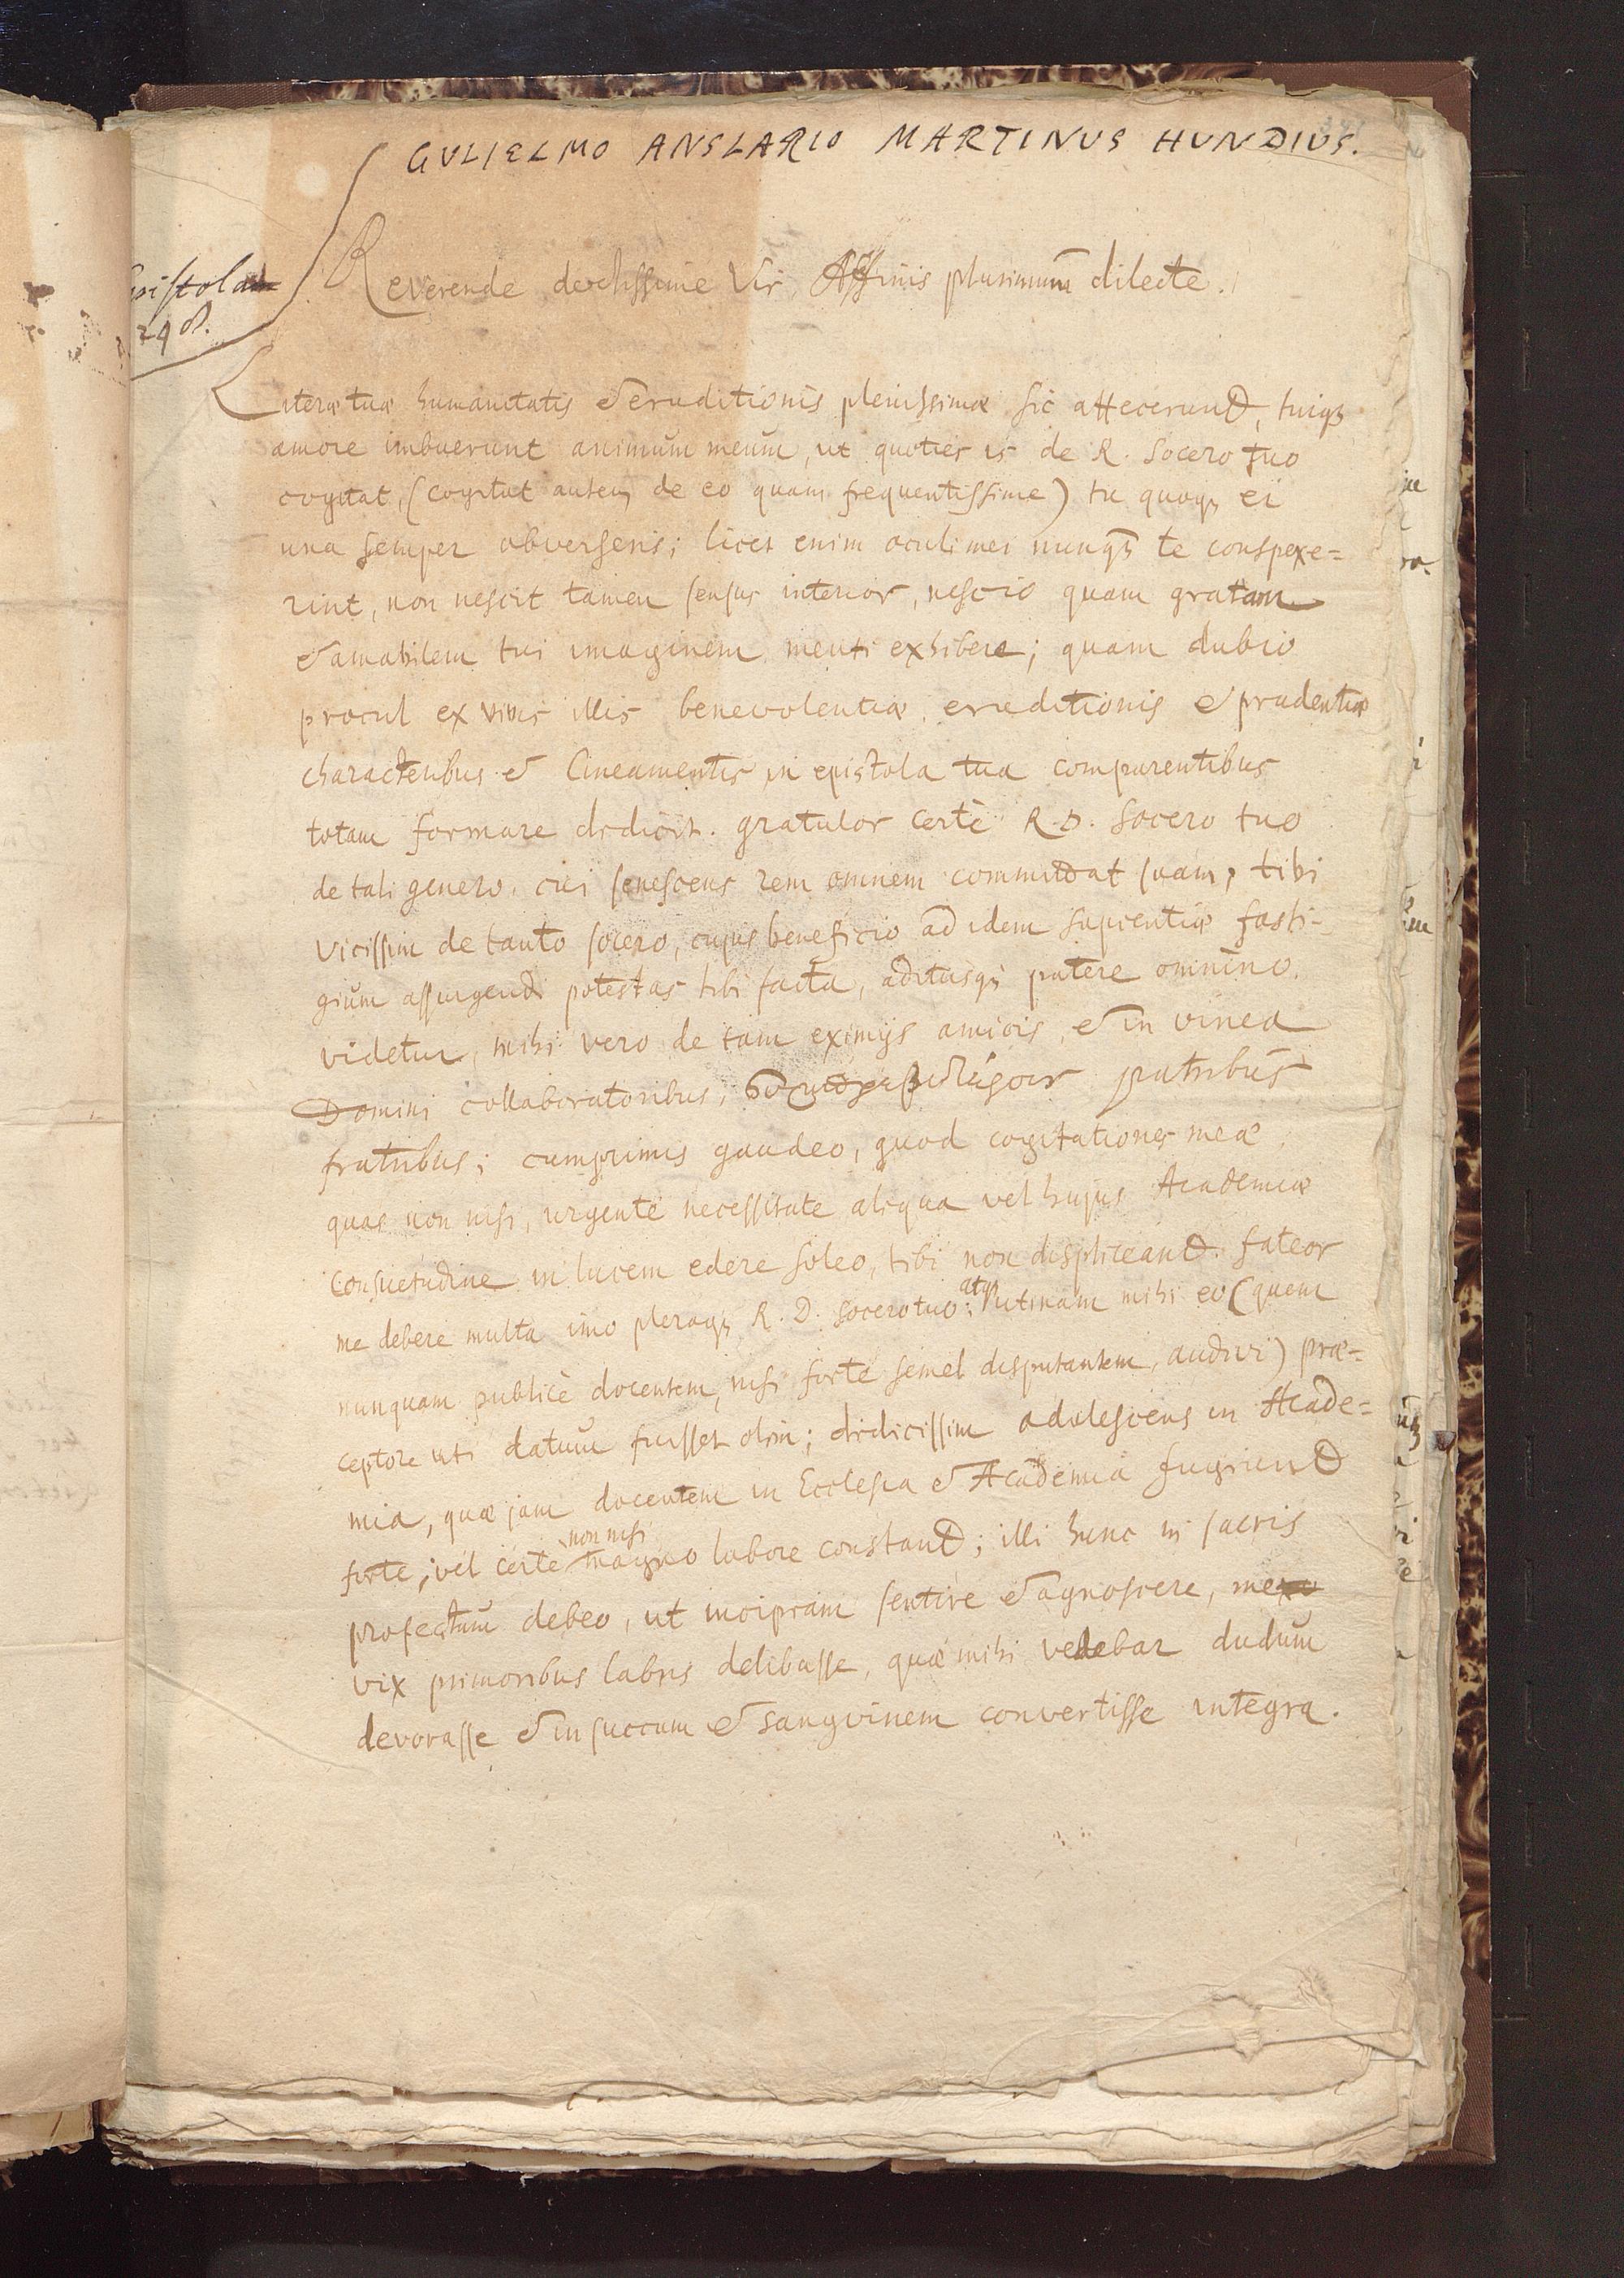 GULIELMO ANSLARIO MARTINUS HUNDIUS.
Epistola
298.
Reverende doctissime Vir Affinis plurimum̄ dilecte.
Literæ tuæ humanitatis & eruditionis plenissimæ sic affecerunt, tuiqꝫ
amore imbuerunt animum meum, ut quoties is de R. Socero tuo
cogitat, (cogitat autem de eo quam frequentissime) tu quoqꝫ ei
una semper obverseris; licet enim oculi mei nunqꝫ te conspexe=
rint, non nescit tamen sensus interior, nescio quam gratam
& amabilem tui imaginem menti exhibere; quam dubio
procul ex vivis illis benevolentiæ, eruditionis & prudentiæ
characteribus & lineamentis in epistola tua comparentibus
totam formare didicit. gratulor certè R.D. Socero tuo
de tali genero, cui senescens rem omnem committat suam, tibi
vicissim de tanto socero, cujus beneficio ad idem sapientiæ fasti-
gium assurgendi potestas tibi facta, aditusqꝫ patere omnino
videtur, mihi vero de tam eximijs amicis, & in vinea
Domini collaboratoribus, patribus
fratribus; cumprimis gaudeo, quod cogitationes meæ
quas non nisi, urgente necessitate aliqua vel hujus Academiæ
consuetudine in lucem edere soleo, tibi non displiceant. fateor
me debere multa imo pleraqꝫ R. D. Socero tuo; atqꝫ utinam mihi eo (quem
nunquam publicè docentem, nisi forte semel disputantem, audivi) præ=
ceptore uti datum fuisset olim; didicissim adolescens in Acade=
mia, quæ jam docentem in Ecclesia & Academia fugiunt
forte, vel certe non nisi magno labore constant; illi hunc in sacris
profectum debeo, ut incipiam sentire & agnoscere, me
vix primoribus labris delibasse, quæ mihi videbar dudum
devorasse & in succum & sangvinem convertisse integra.